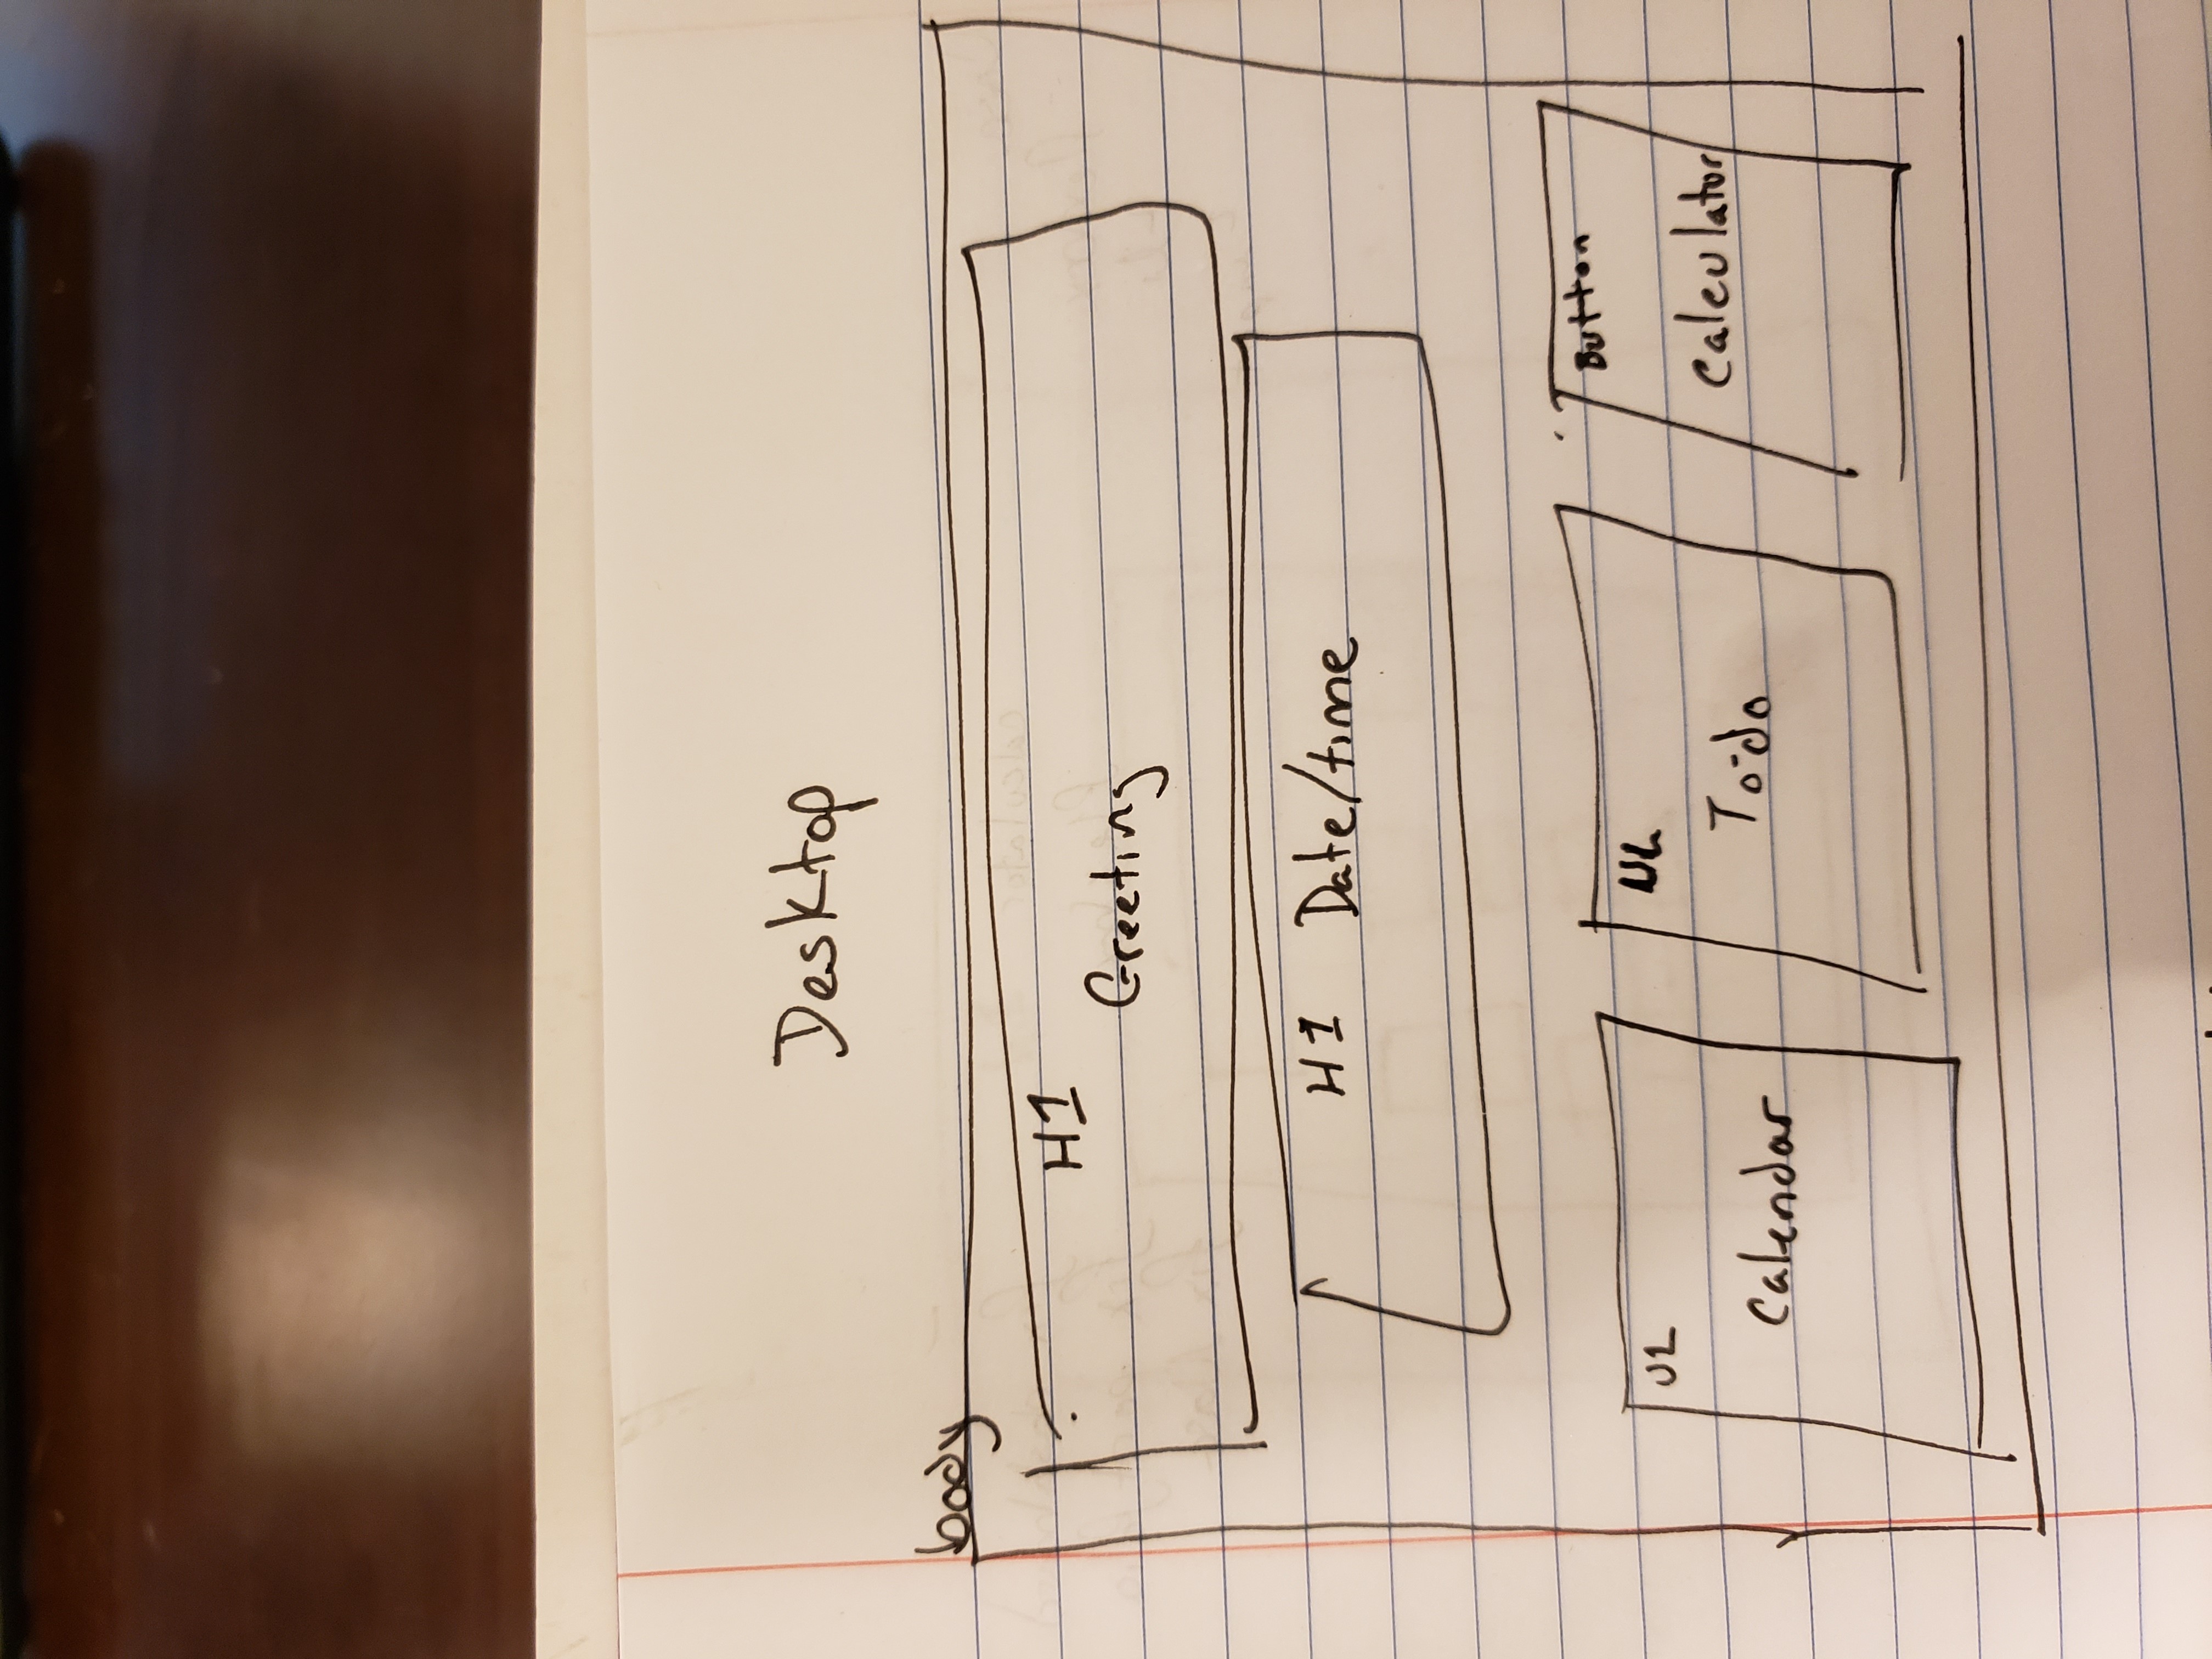 Desktop
body
H1
Greeting
H1 Date/time
UL
Calendar
UL
To-do
Button
Calculator